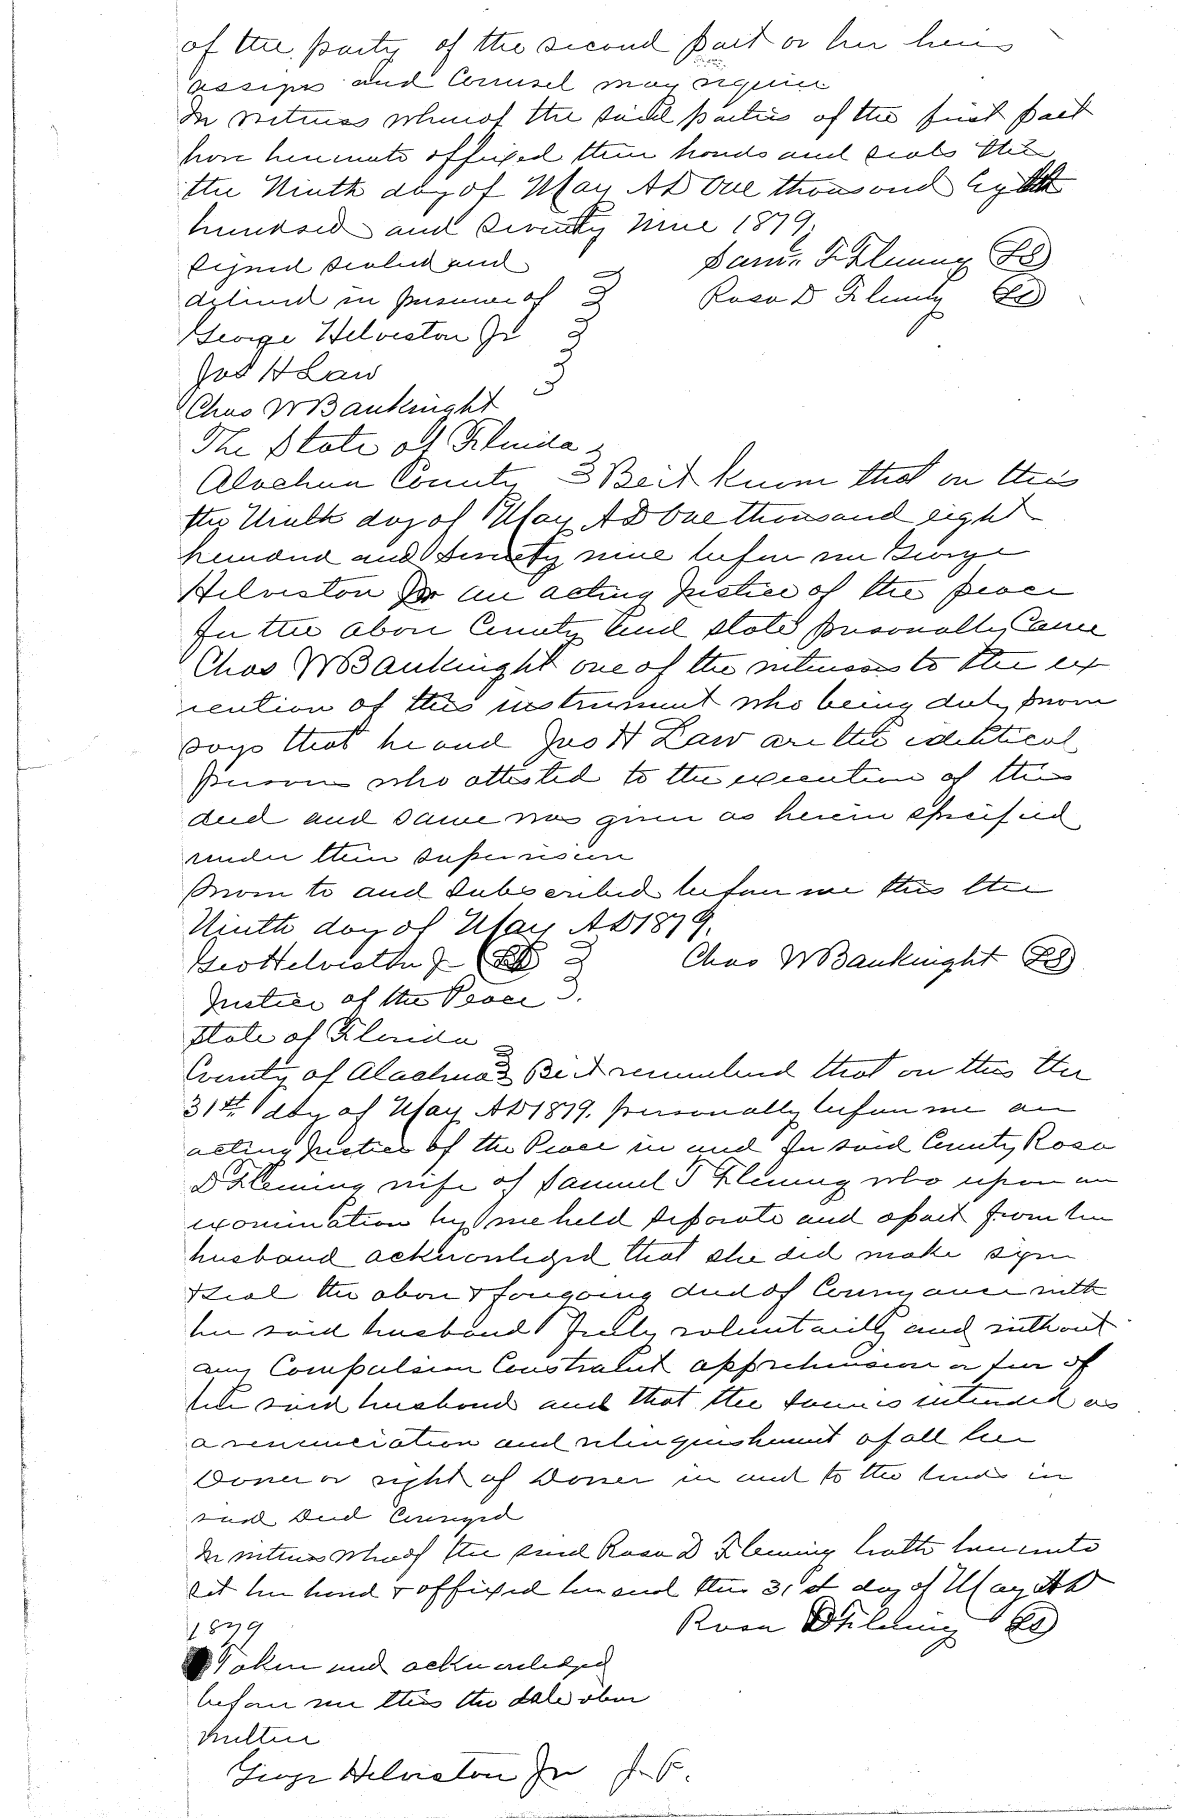 of the party of the second part or her heirs
assigns and Counsel may require
In witness whereof the said parties of the first part
have hereunto affixed their hands and seals this
the Ninth day of May AD One thousand Eight
hundred and Seventy Nine 1879.
Signed Sealed and Saml. T Fleming LS
delivered in presence of Rosa D Fleming LS
George Helveston Jr
Jas H Law
Chas W Bauknight
The State of Florida
Alachua County Be it known that on this
the Ninth day of May AD One thousand eight
hundred and Seventy nine before me George
Helveston Jr an acting Justice of the peace
For the above County and state personally Came
Chas W Bauknight one of the witnesses to the ex
ecution of this instrument who being duly sworn
says that he and Jas H Law are the identical
persons who attested to the execution of this
deed and same was given as herein specified
under their supervision
Sworn to and Subscribed before me this the
Ninth day of May AD 1879.
Geo Helveston Jr LS Chas W Bauknight LS
Justice of the Peace
State of Florida
County of Alachua Be it remembered that on this the
31st day of May AD 1879. personally before me an
acting Justice of the Peace in and for said County Rosa
D Fleming wife of Samuel T Fleming who upon an
examination by me held separate and apart from her
husband acknowledged that she did make sign
& seal the above & foregoing deed of Conveyance with
her said husband freely voluntarily and without
any Compulsion Constraint apprehension or fear of
her said husband and that the same is intended as
a renunciation and relinquishment of all her
Dower or right of Dower in and to the lands in
said Deed Conveyed
In witness whereof the said Rosa D Fleming hath hereunto
set her hand & affixed her seal this 31st day of May AD
1879 Rosa D Fleming LS
Taken and acknowledged
before me this the date above
written
George Helveston Jr J.P.